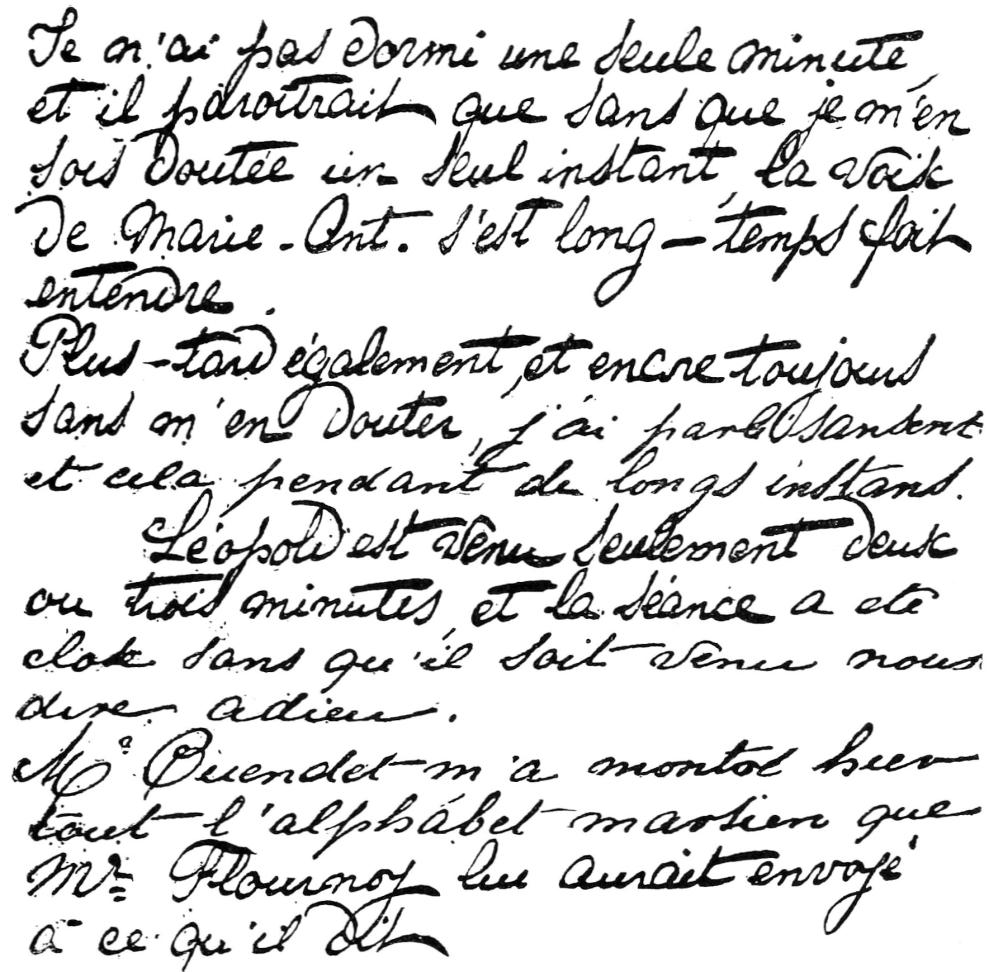 Je n'ai pas dormi une seule minute,
et il paroitrait que sans que je m'en
sois doutée un seul instant, la voix
de Marie-Ant. s'est long-temps fait
entendre.
Plus-tard également, et encre toujours
sans m'en douter, j'ai parlé sanscrit
et cela pendant de longs instans.
Léopold est venu seulement deux
ou trois minutes, et la séance a été
close sans qu'il soit venu nous
dire adieu.
Mr Cuendet m'a montré hier
tout l'alphabet martien que
Mr. Flournoy lui aurait envoyé
à ce qu'il dit